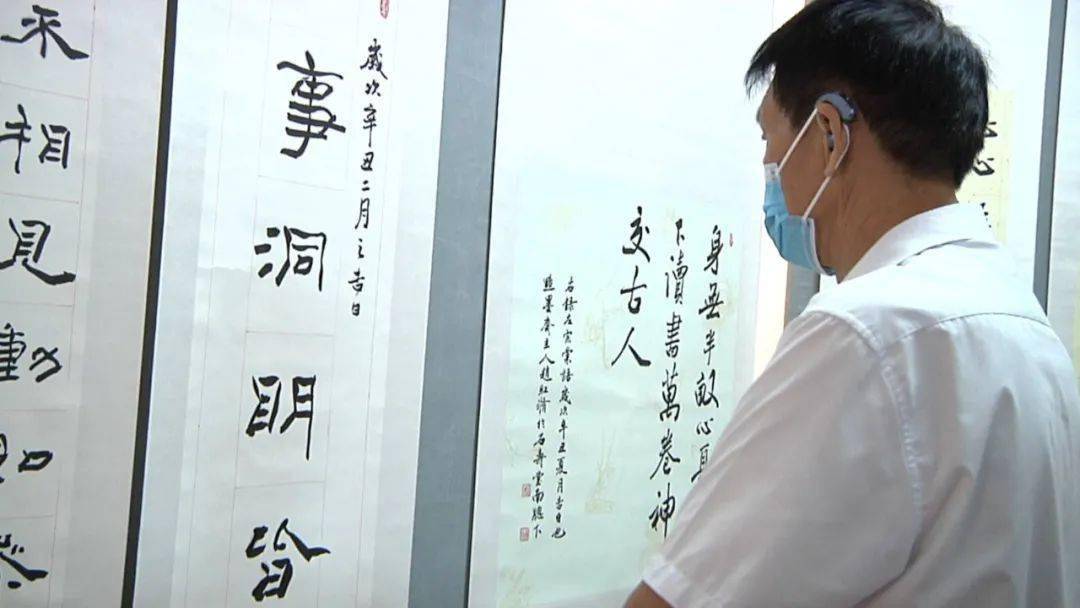 身無半畝心
下讀書萬卷神
交古人
右錄左宗棠語歲次辛丑夏月吉日也
墨齋主人趙紅 於石壽堂南牕下
歲次辛丑二月之吉日
事洞明皆
相見動如參